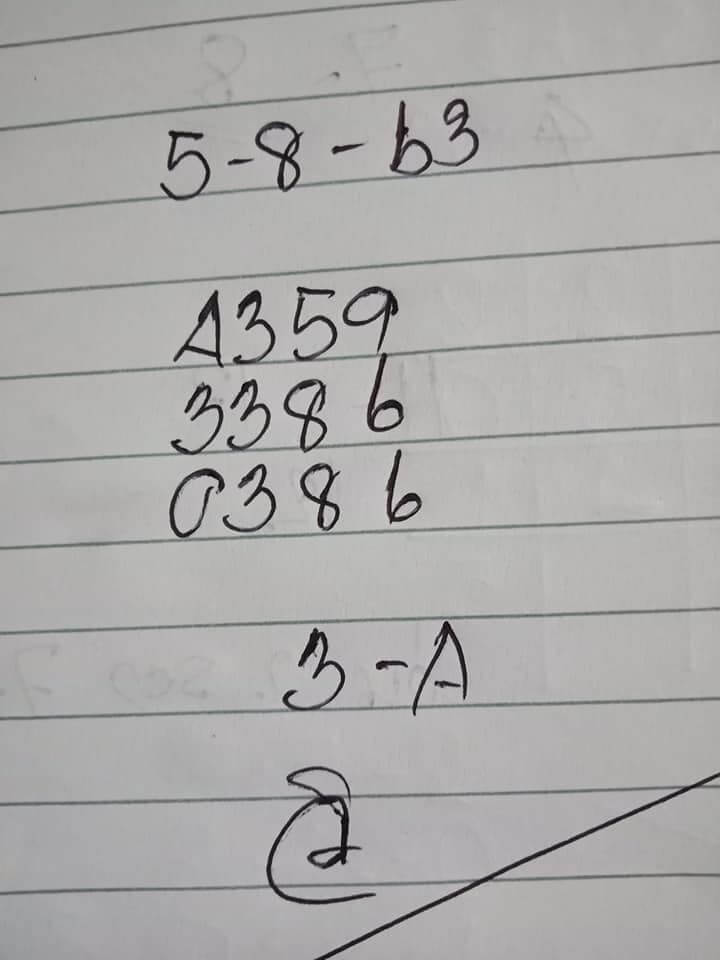 5-8-b3
A359
3386
0386
3-A